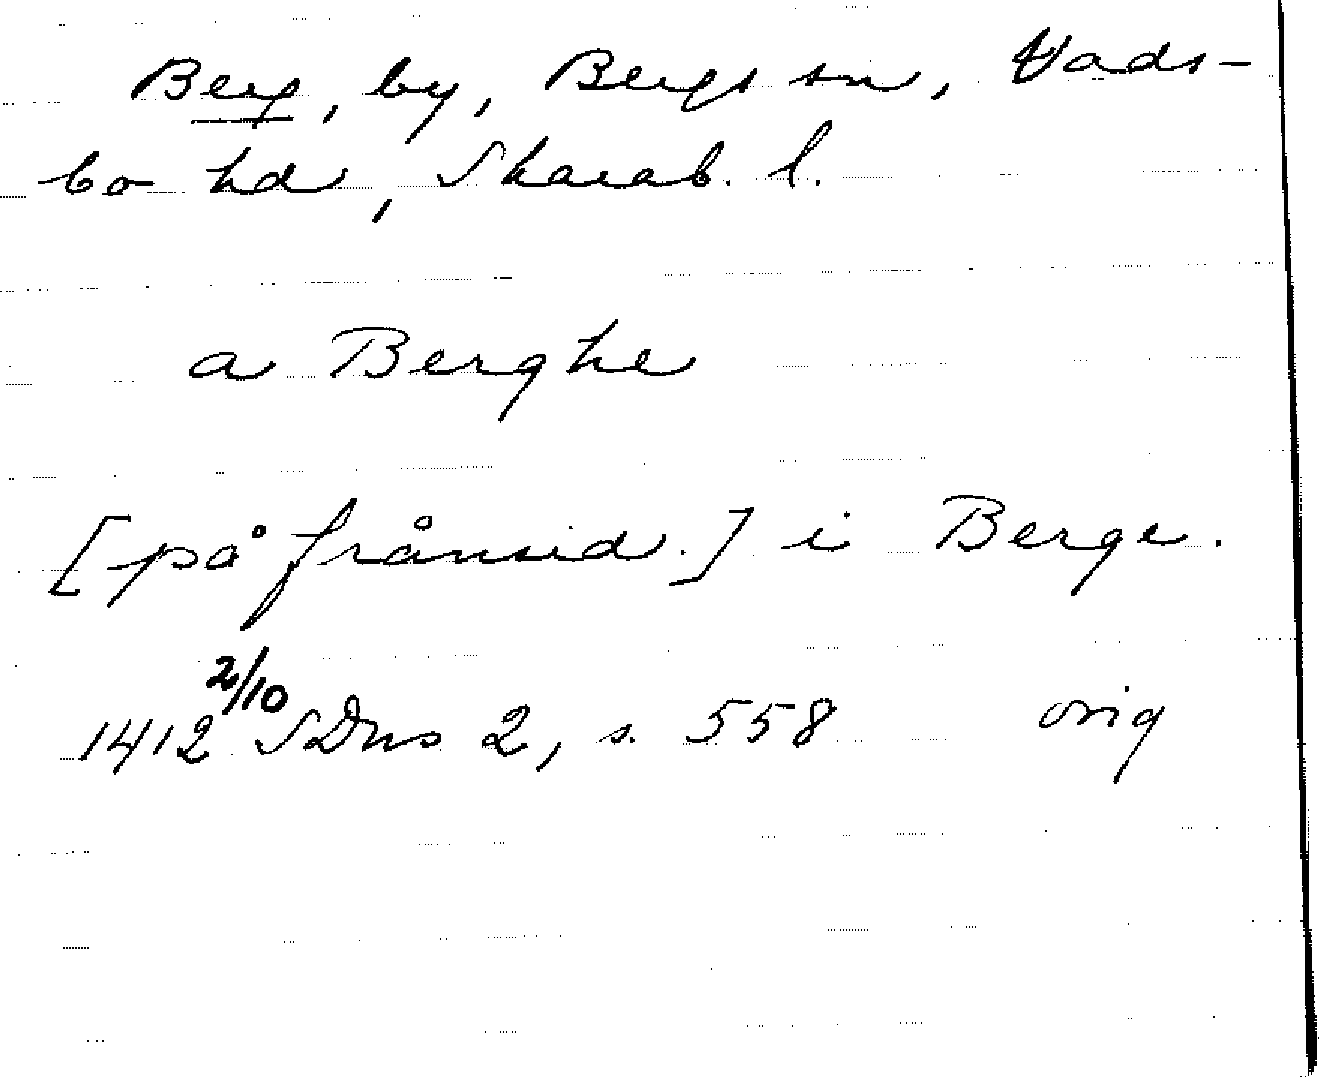 Berg, by, Bergs sn, Vads-
bo hd, Skarab. l.
a Berghe
[på frånsid.] i Berge.
1412 2/10 SDns 2, s. 558 orig